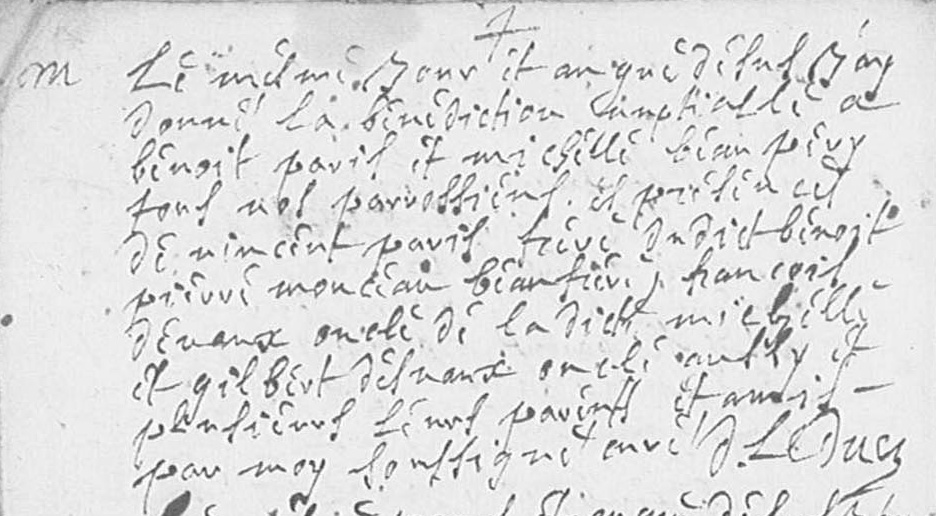 m Le mesme Jour et an que desus J'ay
donné la bénédiction nuptialle a
benoit paris et michelle beau pery
tous nos parrossiens. es presences
de vincent paris frere dudict benoist
pierre monceau beaufrere, francois
devaux oncle de la dict michelle
et gilbert desvaux oncle aussy et
plusieurs leurs parents et amis -
par moy soussigné curé D. LeDuc